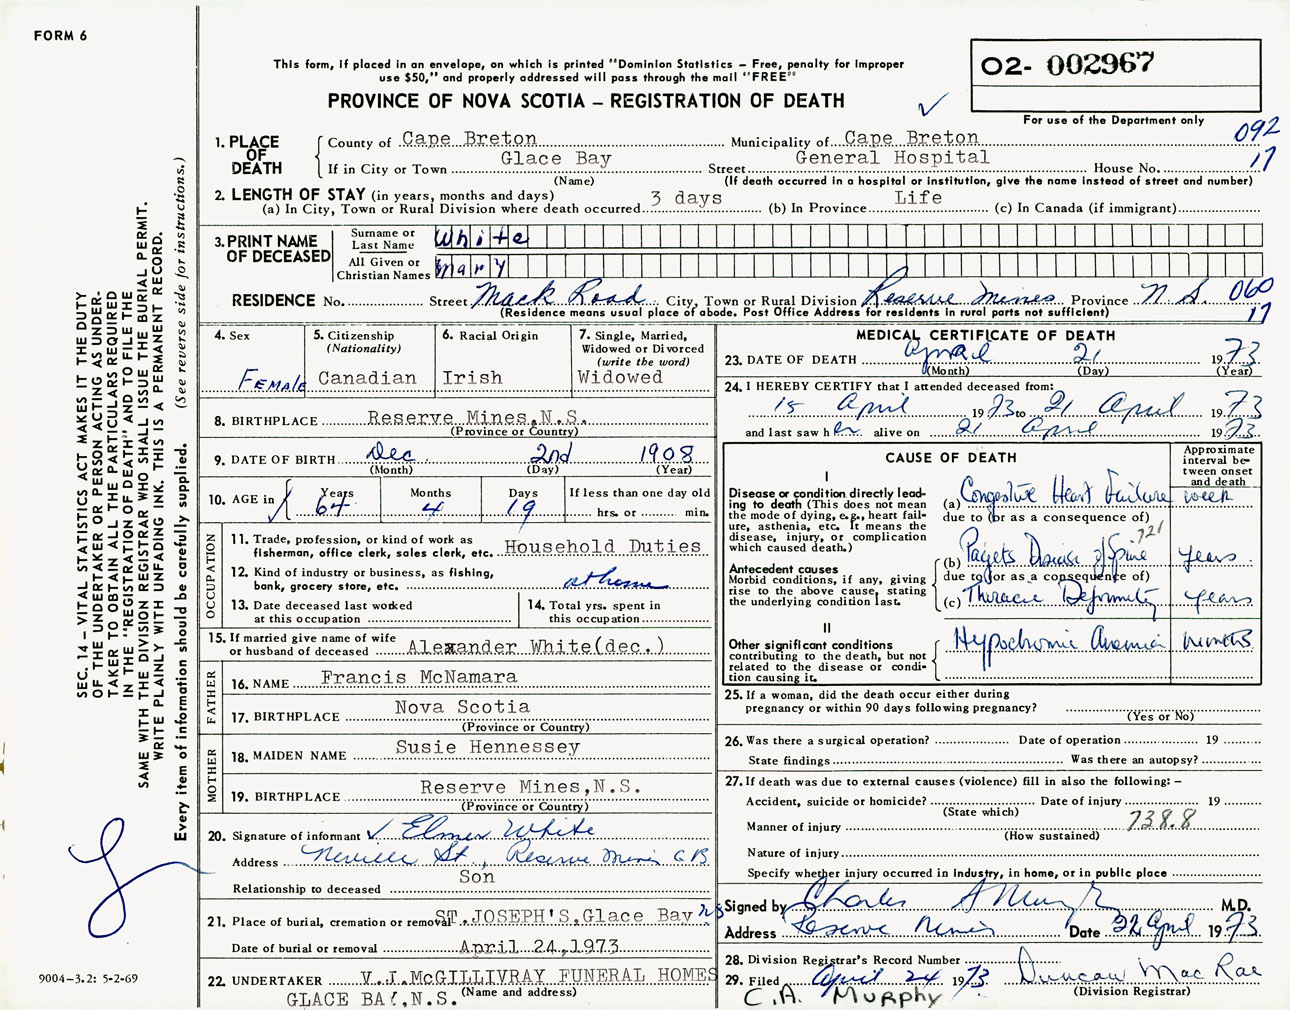 FORM 6
This form, if placed in an envelope, on which is printed "Dominion Statistics – Free, penalty for improper
use $50," and properly addressed will pass through the mail "FREE"
PROVINCE OF NOVA SCOTIA – REGISTRATION OF DEATH
02- 002967
For use of the Department only
092
17
1. PLACE OF DEATH
County of Cape Breton Municipality of Cape Breton
If in City or Town Glace Bay Street General Hospital House No.
(Name) (If death occurred in a hospital or institution, give the name instead of street and number)
2. LENGTH OF STAY (in years, months and days)
(a) In City, Town or Rural Division where death occurred 3 days (b) In Province Life (c) In Canada (if immigrant)
3. PRINT NAME OF DECEASED
Surname or Last Name White
All Given or Christian Names Mary
RESIDENCE No. Street Mack Road City, Town or Rural Division Reserve Mines Province N.S. 060
(Residence means usual place of abode. Post Office Address for residents in rural parts not sufficient) 17
4. Sex Female
5. Citizenship (Nationality) Canadian
6. Racial Origin Irish
7. Single, Married, Widowed or Divorced (write the word) Widowed
8. BIRTHPLACE Reserve Mines, N.S.
(Province or Country)
9. DATE OF BIRTH Dec. 2nd 1908
(Month) (Day) (Year)
10. AGE in Years 64 Months 4 Days 19 If less than one day old hrs. or min.
OCCUPATION
11. Trade, profession, or kind of work as fisherman, office clerk, sales clerk, etc. Household Duties
12. Kind of industry or business, as fishing, bank, grocery store, etc. at home
13. Date deceased last worked at this occupation
14. Total yrs. spent in this occupation
15. If married give name of wife or husband of deceased Alexander White(dec.)
FATHER
16. NAME Francis McNamara
17. BIRTHPLACE Nova Scotia
(Province or Country)
MOTHER
18. MAIDEN NAME Susie Hennessey
19. BIRTHPLACE Reserve Mines, N.S.
(Province or Country)
20. Signature of informant Elmer White
Address Neville St., Reserve Mines C B
Relationship to deceased Son
21. Place of burial, cremation or removal ST.JOSEPH'S,Glace Bay NS
Date of burial or removal April 24,1973
22. UNDERTAKER V.J.McGILLIVRAY FUNERAL HOMES
(Name and address)
GLACE BAY,N.S.
MEDICAL CERTIFICATE OF DEATH
23. DATE OF DEATH April 21 1973
(Month) (Day) (Year)
24. I HEREBY CERTIFY that I attended deceased from:
15 April 1973 to 21 April 1973
and last saw her alive on 21 April 1973
CAUSE OF DEATH
Approximate interval between onset and death
I
Disease or condition directly leading to death (This does not mean the mode of dying, e.g., heart failure, asthenia, etc. It means the disease, injury, or complication which caused death.)
(a) Congestive Heart Failure week
due to (or as a consequence of)
721
Antecedent causes
Morbid conditions, if any, giving rise to the above cause, stating the underlying condition last.
(b) Pagets Disease of Spine years
due to (or as a consequence of)
(c) Thoracic Deformity years
II
Other significant conditions contributing to the death, but not related to the disease or condition causing it.
Hypochromic Anemia months
25. If a woman, did the death occur either during pregnancy or within 90 days following pregnancy?
(Yes or No)
26. Was there a surgical operation? Date of operation 19
State findings Was there an autopsy?
27. If death was due to external causes (violence) fill in also the following: –
Accident, suicide or homicide? Date of injury 19
(State which)
Manner of injury 738.8
(How sustained)
Nature of injury
Specify whether injury occurred in industry, in home, or in public place
Signed by Charles A Murphy M.D.
Address Reserve Mines Date 22 April 1973
28. Division Registrar's Record Number
29. Filed April 24 1973 Duncan MacRae
(Division Registrar)
C.A. Murphy
SEC. 14 – VITAL STATISTICS ACT MAKES IT THE DUTY
OF THE UNDERTAKER OR PERSON ACTING AS UNDER-
TAKER TO OBTAIN ALL THE PARTICULARS REQUIRED
IN THE "REGISTRATION OF DEATH" AND TO FILE THE
SAME WITH THE DIVISION REGISTRAR WHO SHALL ISSUE THE BURIAL PERMIT.
WRITE PLAINLY WITH UNFADING INK. THIS IS A PERMANENT RECORD.
Every item of information should be carefully supplied. (See reverse side for instructions.)
9004-3.2: 5-2-69